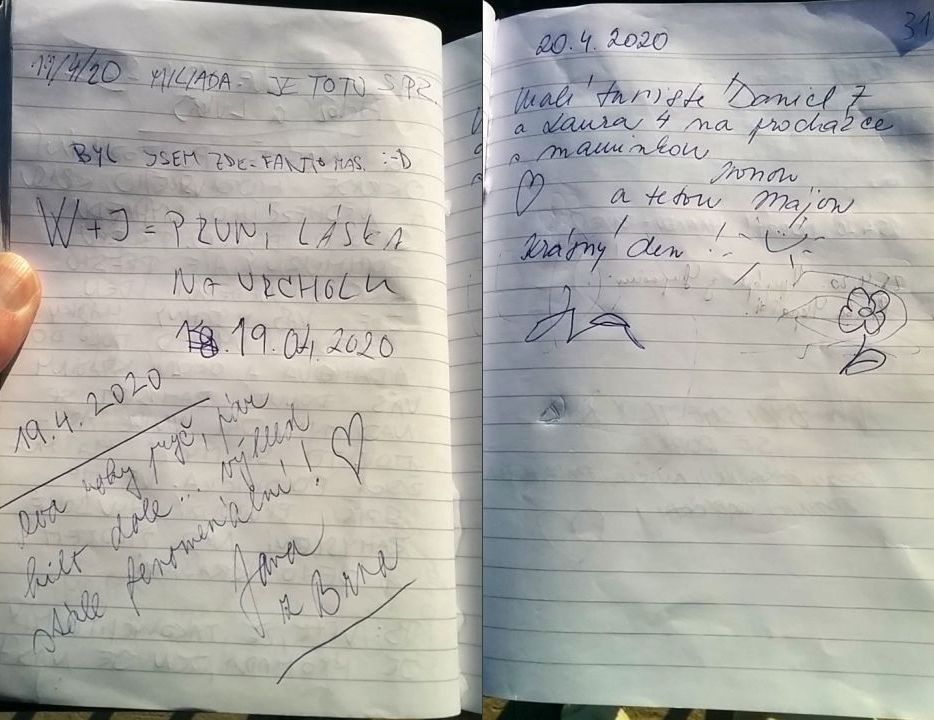 19/4/20 MILIADA - JE TOTU SPZ.
BYL JSEM ZDE - FANTOMAS :-D
W + J = PRVNÍ LÁSKA
NA VRCHOLU
19.04.2020
19.4.2020
dva roky pryč, pár
kilo dole... výhled
stále fenomenální! ♡
Jana
z Brna
31
20.4.2020
Malí turisté Daniel 7
a Laura 4 na procházce
s maminkou
Ivonou
♡ a tetou Májou
Krásný den!